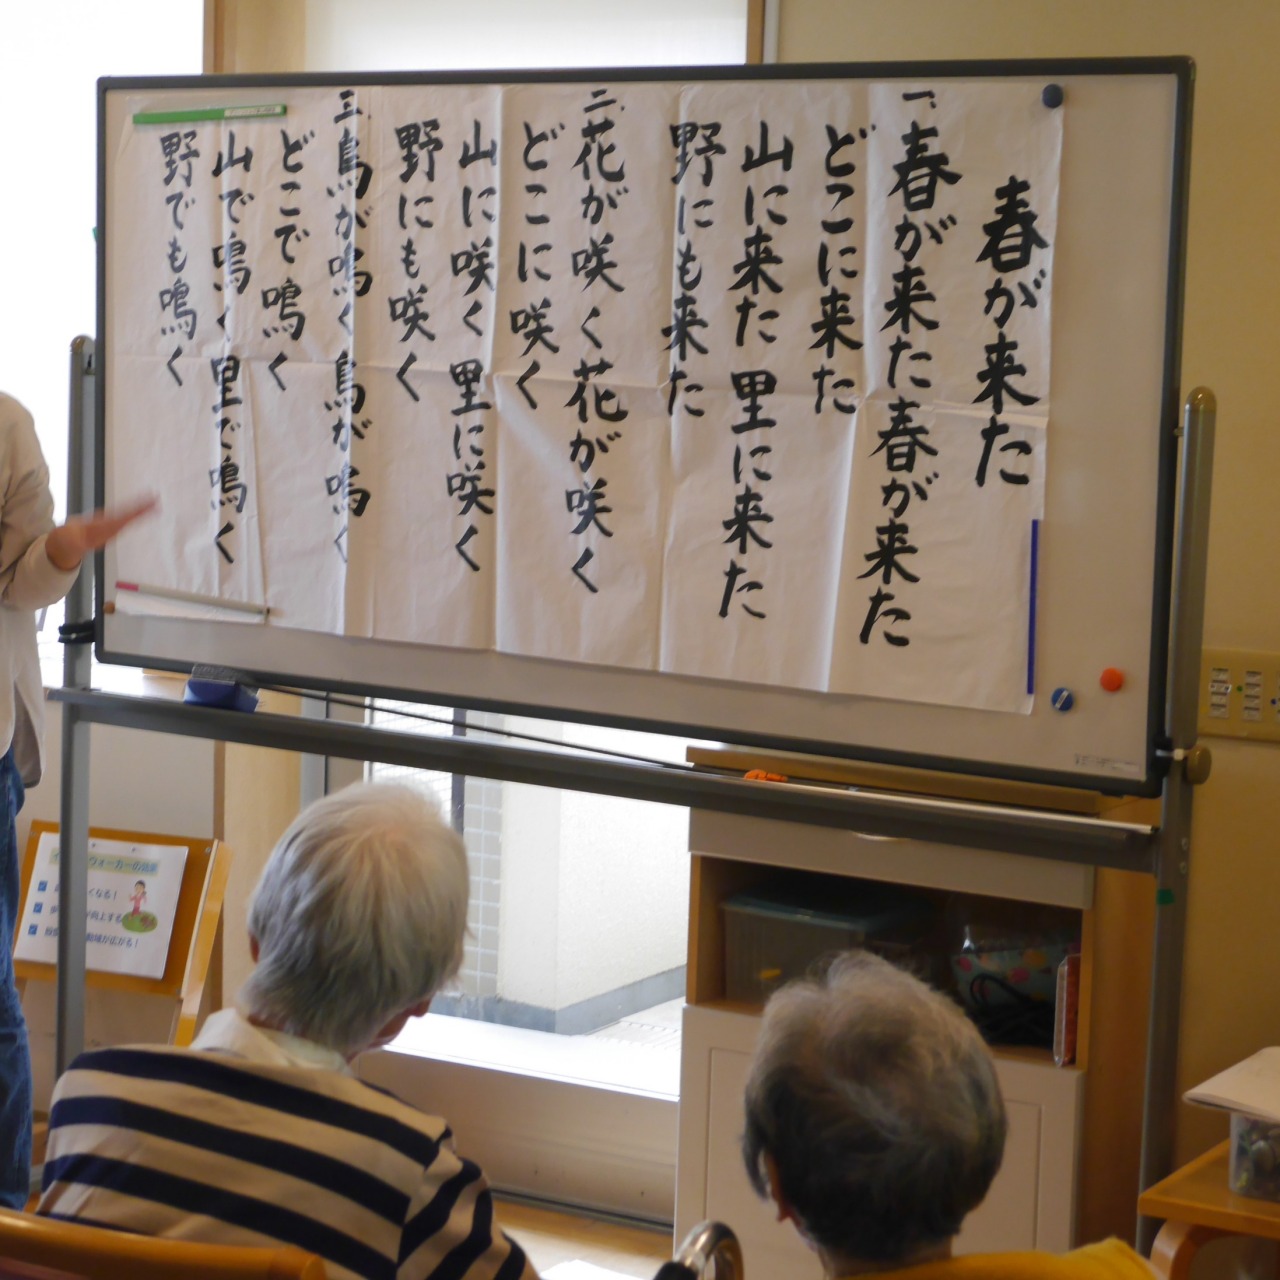 春が来た
一、春が来た春が来た
どこに来た
山に来た 里に来た
野にも来た
二、花が咲く花が咲く
どこに咲く
山に咲く 里に咲く
野にも咲く
三、鳥が鳴く 鳥が鳴く
どこで鳴く
山で鳴く 里で鳴く
野でも鳴く
ウォーカーの効果
くなる!
が向上する
動域が広がる!